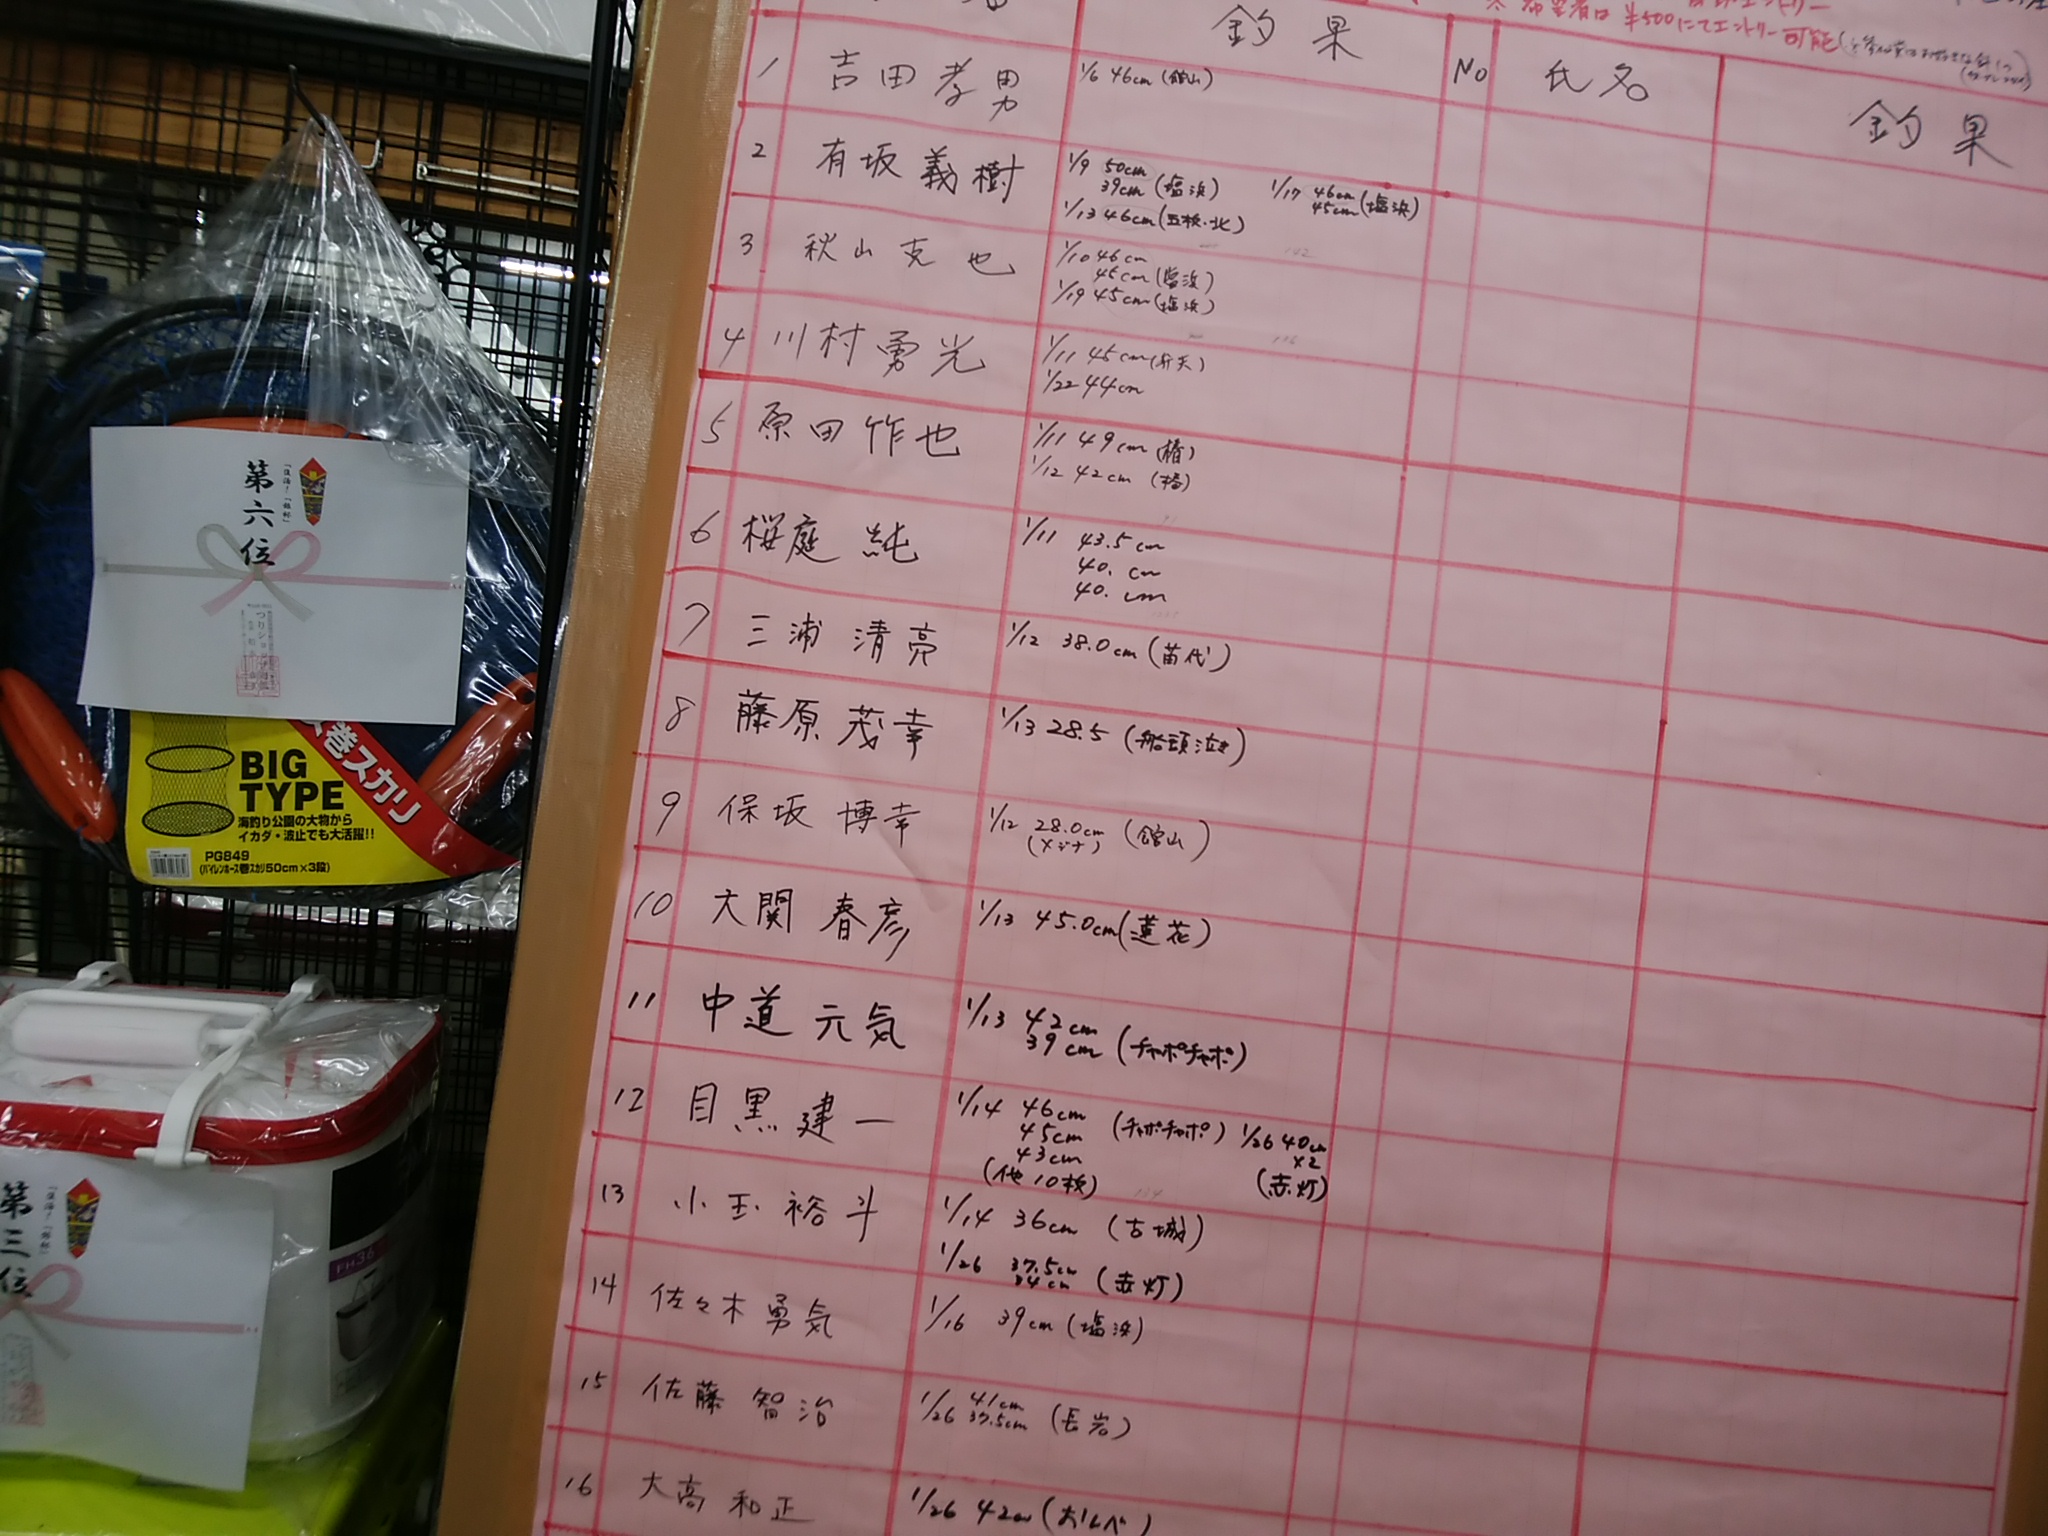 ※希望者は ¥500にてエントリー可能
釣果
No
氏名
釣果
1 吉田孝男 1/6 46cm (館山)
2 有坂義樹 1/9 50cm
39cm (塩浜)
1/13 46cm (五枚・北)
1/17 46cm
45cm (塩浜)
3 秋山克也 1/10 46cm
45cm (塩浜)
1/19 45cm (塩浜)
4 川村勇光 1/11 45cm (弁天)
1/22 44cm
5 原田作也 1/11 49cm (椿)
1/12 42cm (椿)
6 桜庭 純 1/11 43.5cm
40. cm
40. cm
7 三浦 清亮 1/12 38.0cm (苗代)
8 藤原 茂幸 1/13 28.5 (船頭泣き)
9 保坂 博幸 1/12 28.0cm (館山)
(メジナ)
10 大関 春彦 1/13 45.0cm (蓮花)
11 中道 元気 1/13 42cm
39cm (チャポチャポ)
12 目黒 建一 1/14 46cm (チャポチャポ)
45cm
43cm
(他10枚)
1/26 40cm
×2
(赤灯)
13 小玉 裕斗 1/14 36cm (古城)
1/26 37.5cm
34cm (赤灯)
14 佐々木 勇気 1/16 39cm (塩浜)
15 佐藤 智治 1/26 41cm
37.5cm (長岩)
16 大高 和正 1/26 42cm
第六位
巻スカリ
BIG
TYPE
海釣り公園の大物から
イカダ・波止でも大活躍!!
PG849
(パイレンホース巻スカリ50cm×3段)
第三位
FH36